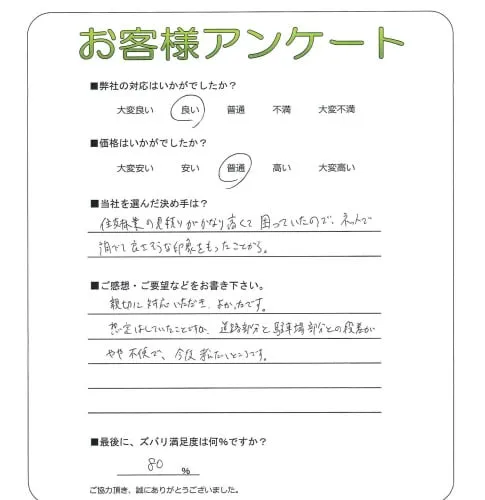 お客様アンケート
■弊社の対応はいかがでしたか？
大変良い 良い 普通 不満 大変不満
■価格はいかがでしたか？
大変安い 安い 普通 高い 大変高い
■当社を選んだ決め手は？
住友林業の見積りがかなり高くて困っていたので、ネットで
調べて良さそうな印象をもったことから。
■ご感想・ご要望などをお書き下さい。
親切に対応いただき、よかったです。
想定はしていたことですが、道路部分と駐車場部分との段差が
やや不便で、今後
ところです。
■最後に、ズバリ満足度は何%ですか？
80 %
ご協力頂き、誠にありがとうございました。